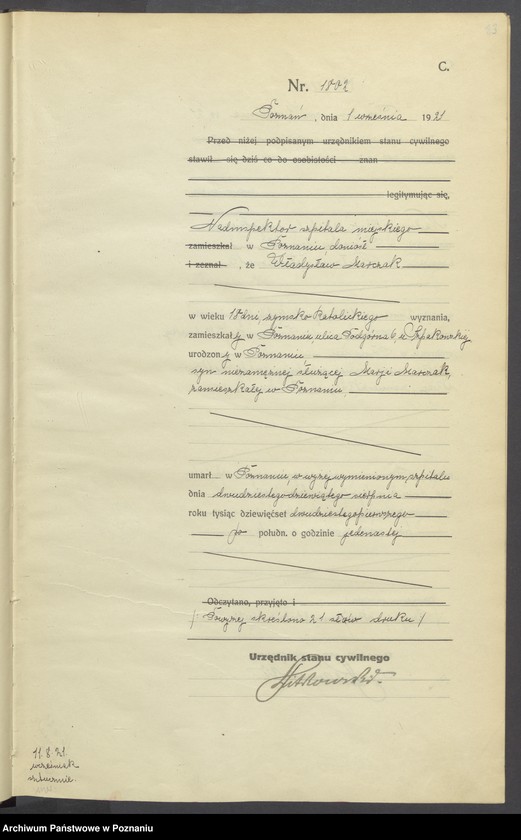 C.
Nr. 1002
Poznań, dnia 1 września 1921
Przed niżej podpisanym urzędnikiem stanu cywilnego
stawił się dziś co do osobistości znan
legitymując się,
Nadinspektor szpitala miejskiego
zamieszkał w Poznaniu, doniósł
i zeznał, że Władysław Marczak
w wieku 18 dni, rzymsko katolickiego wyznania,
zamieszkały w Poznaniu, ulica Podgórna 6, u Szpakowskiej
urodzony w Poznaniu,
syn niezamężnej służącej Marji Marczak,
zamieszkałej w Poznaniu,
umarł w Poznaniu, w wyżej wymienionym szpitalu
dnia dwudziestego dziewiątego sierpnia
roku tysiąc dziewięćset dwudziestego pierwszego
po połudn. o godzinie jedenastej
Odczytano, przyjęto i
/ Powyżej skreślono 21 słów druku /
Urzędnik stanu cywilnego
11.8.21
Archiwum Państwowe w Poznaniu